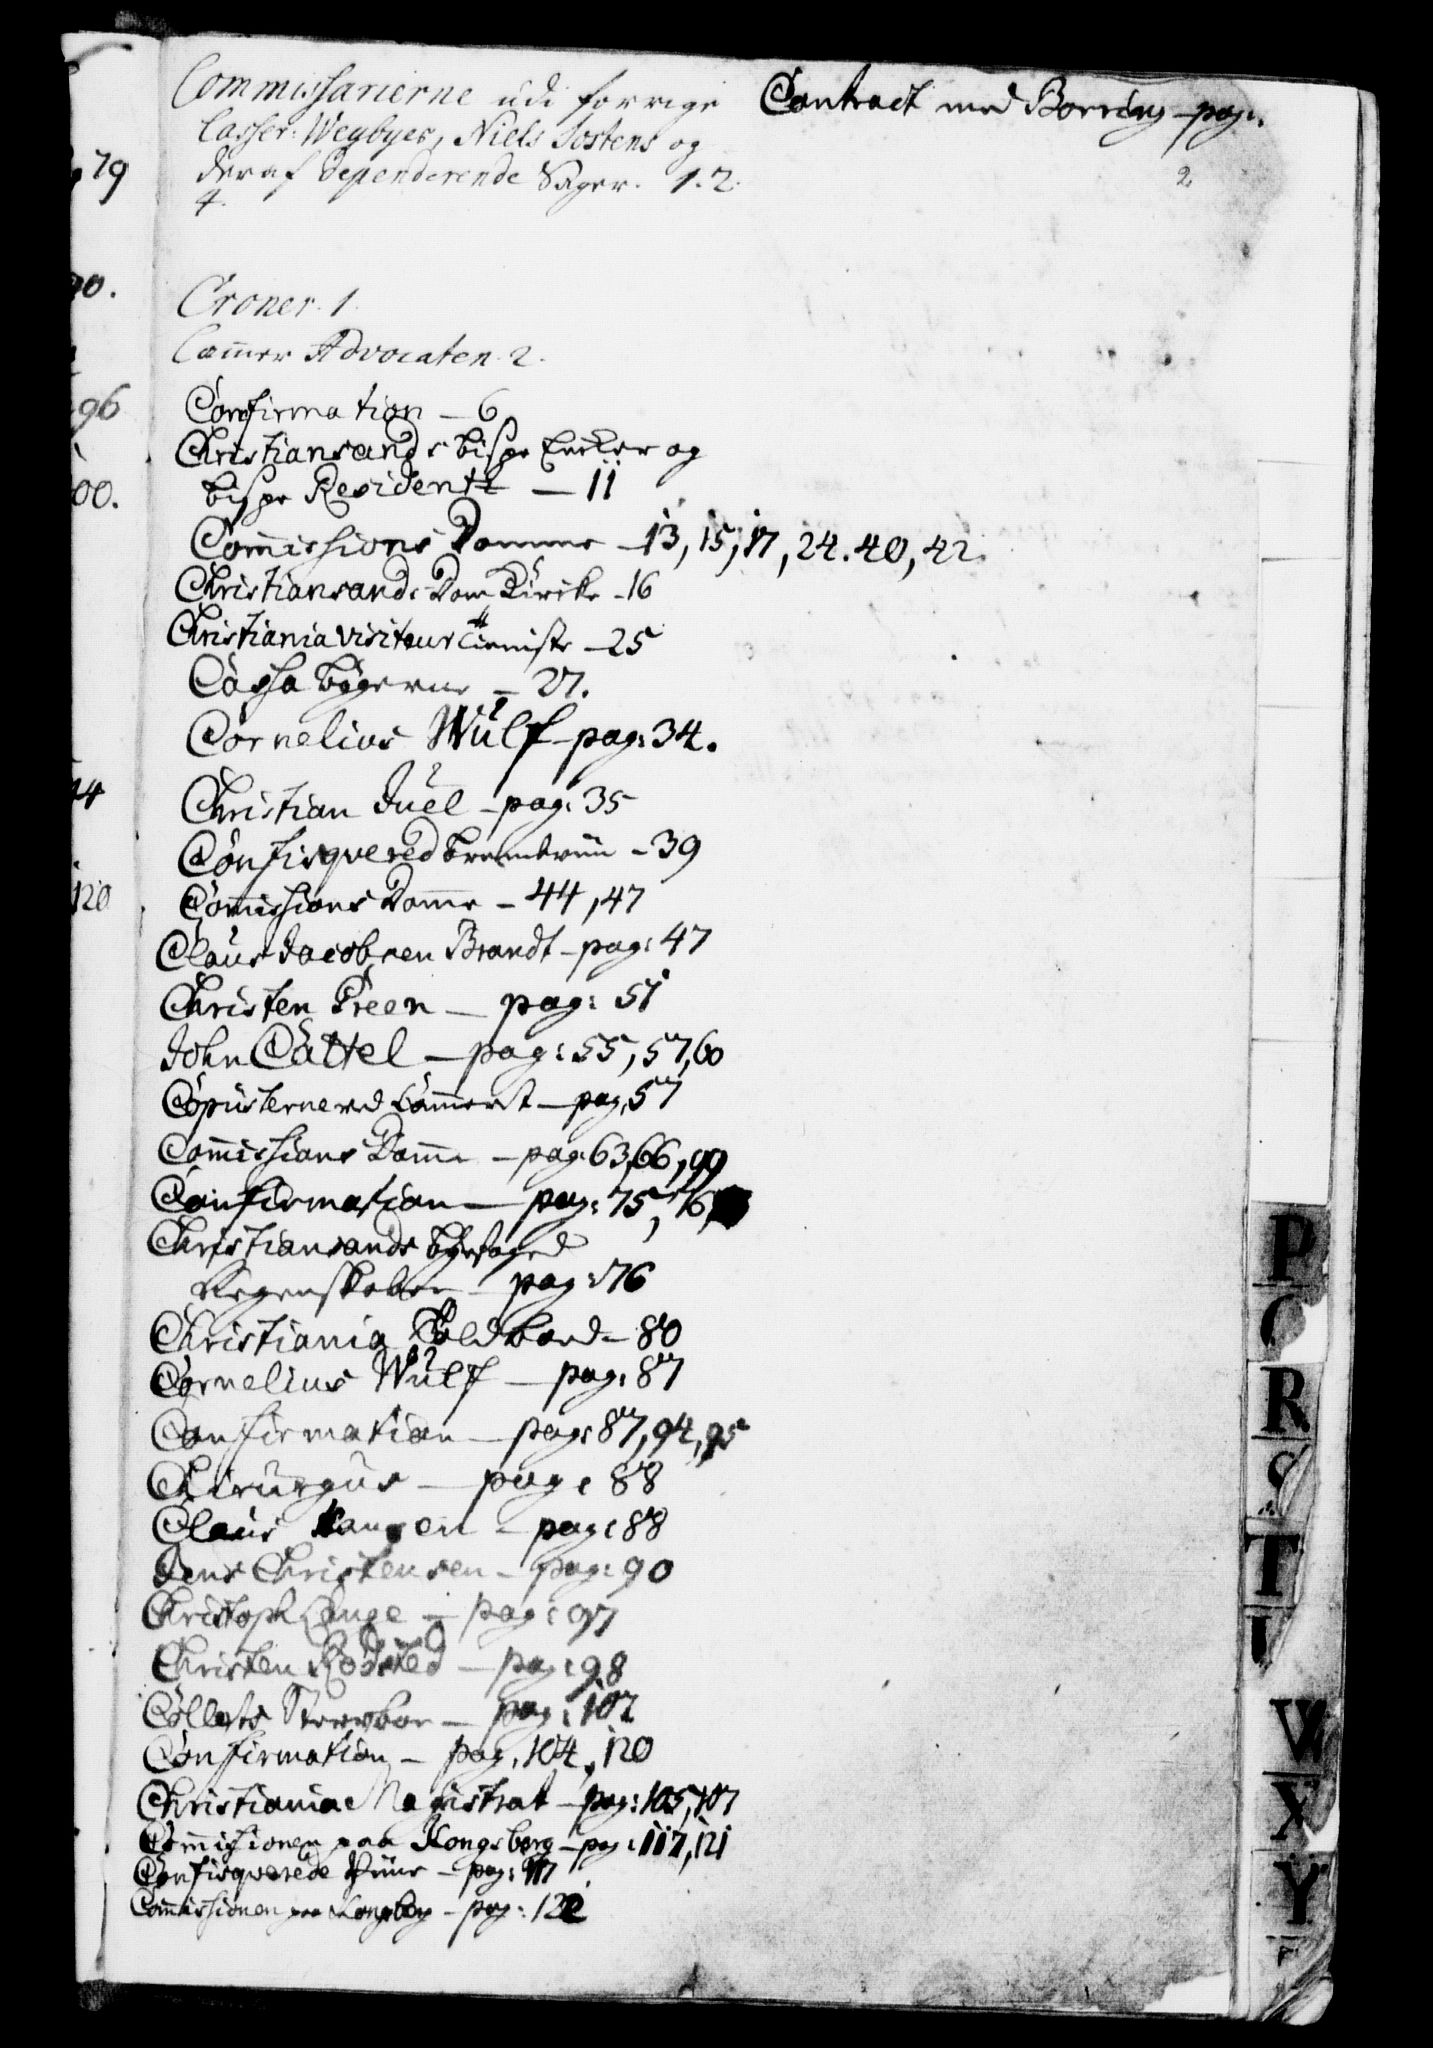 Commissarierne udi forrige
Casser: Weybyes, Niels Tostens og
deraf dependerende Sager. 1. 2.
4.
Croner. 1.
Cam̅er Advocaten. 2.
Confirmation — 6
Christiansands bispe Encker og
bispe Residentz — 11
Com̅issions Domme — 13, 15, 17, 24. 40, 42.
Christiansands Dom Kircke - 16
Christiania Visiteur tieniste — 25
Cassa bøgerne — 27.
Cornelius Wulf — pag: 34.
Christian Juel — pag: 35
Confisqvered - 39
Com̅issions Dom̅e — 44, 47
Claus Jacobsen Brandt — pag: 47
Christen Preen — pag: 51
John Cattel — pag: 55, 57, 60
Copiisterne ved Cam̅eret — pag. 57
Com̅issions Dom̅e — pag: 63, 66, 99
Confirmation — pag: 75, 76,
Christiansands byefoged
Regenskaber — pag: 76
Christiania Toldbod — 80
Cornelius Wulf — pag: 87
Confirmation — pag: 87, 94, 95
Chirurgus — pag: 88
Claus Hansen — pag: 88
Jens Christensen — pag: 90
Christoph Lange — pag: 97
Christen Rodsted — pag: 98
Colletts Sterfboe — pag: 102
Confirmation — pag. 104, 120
Christianiae Magistrat — pag: 105, 107
Com̅issionen paa Kongsberg — pag: 117, 121
Confisqverede Viine — pag: 117
Commissionen paa Kongsberg — pag: 122
Contract med Borring — pag:
2
79
90.
96
00.
14
120
P
Q
R
S
T
V
W
X
Y